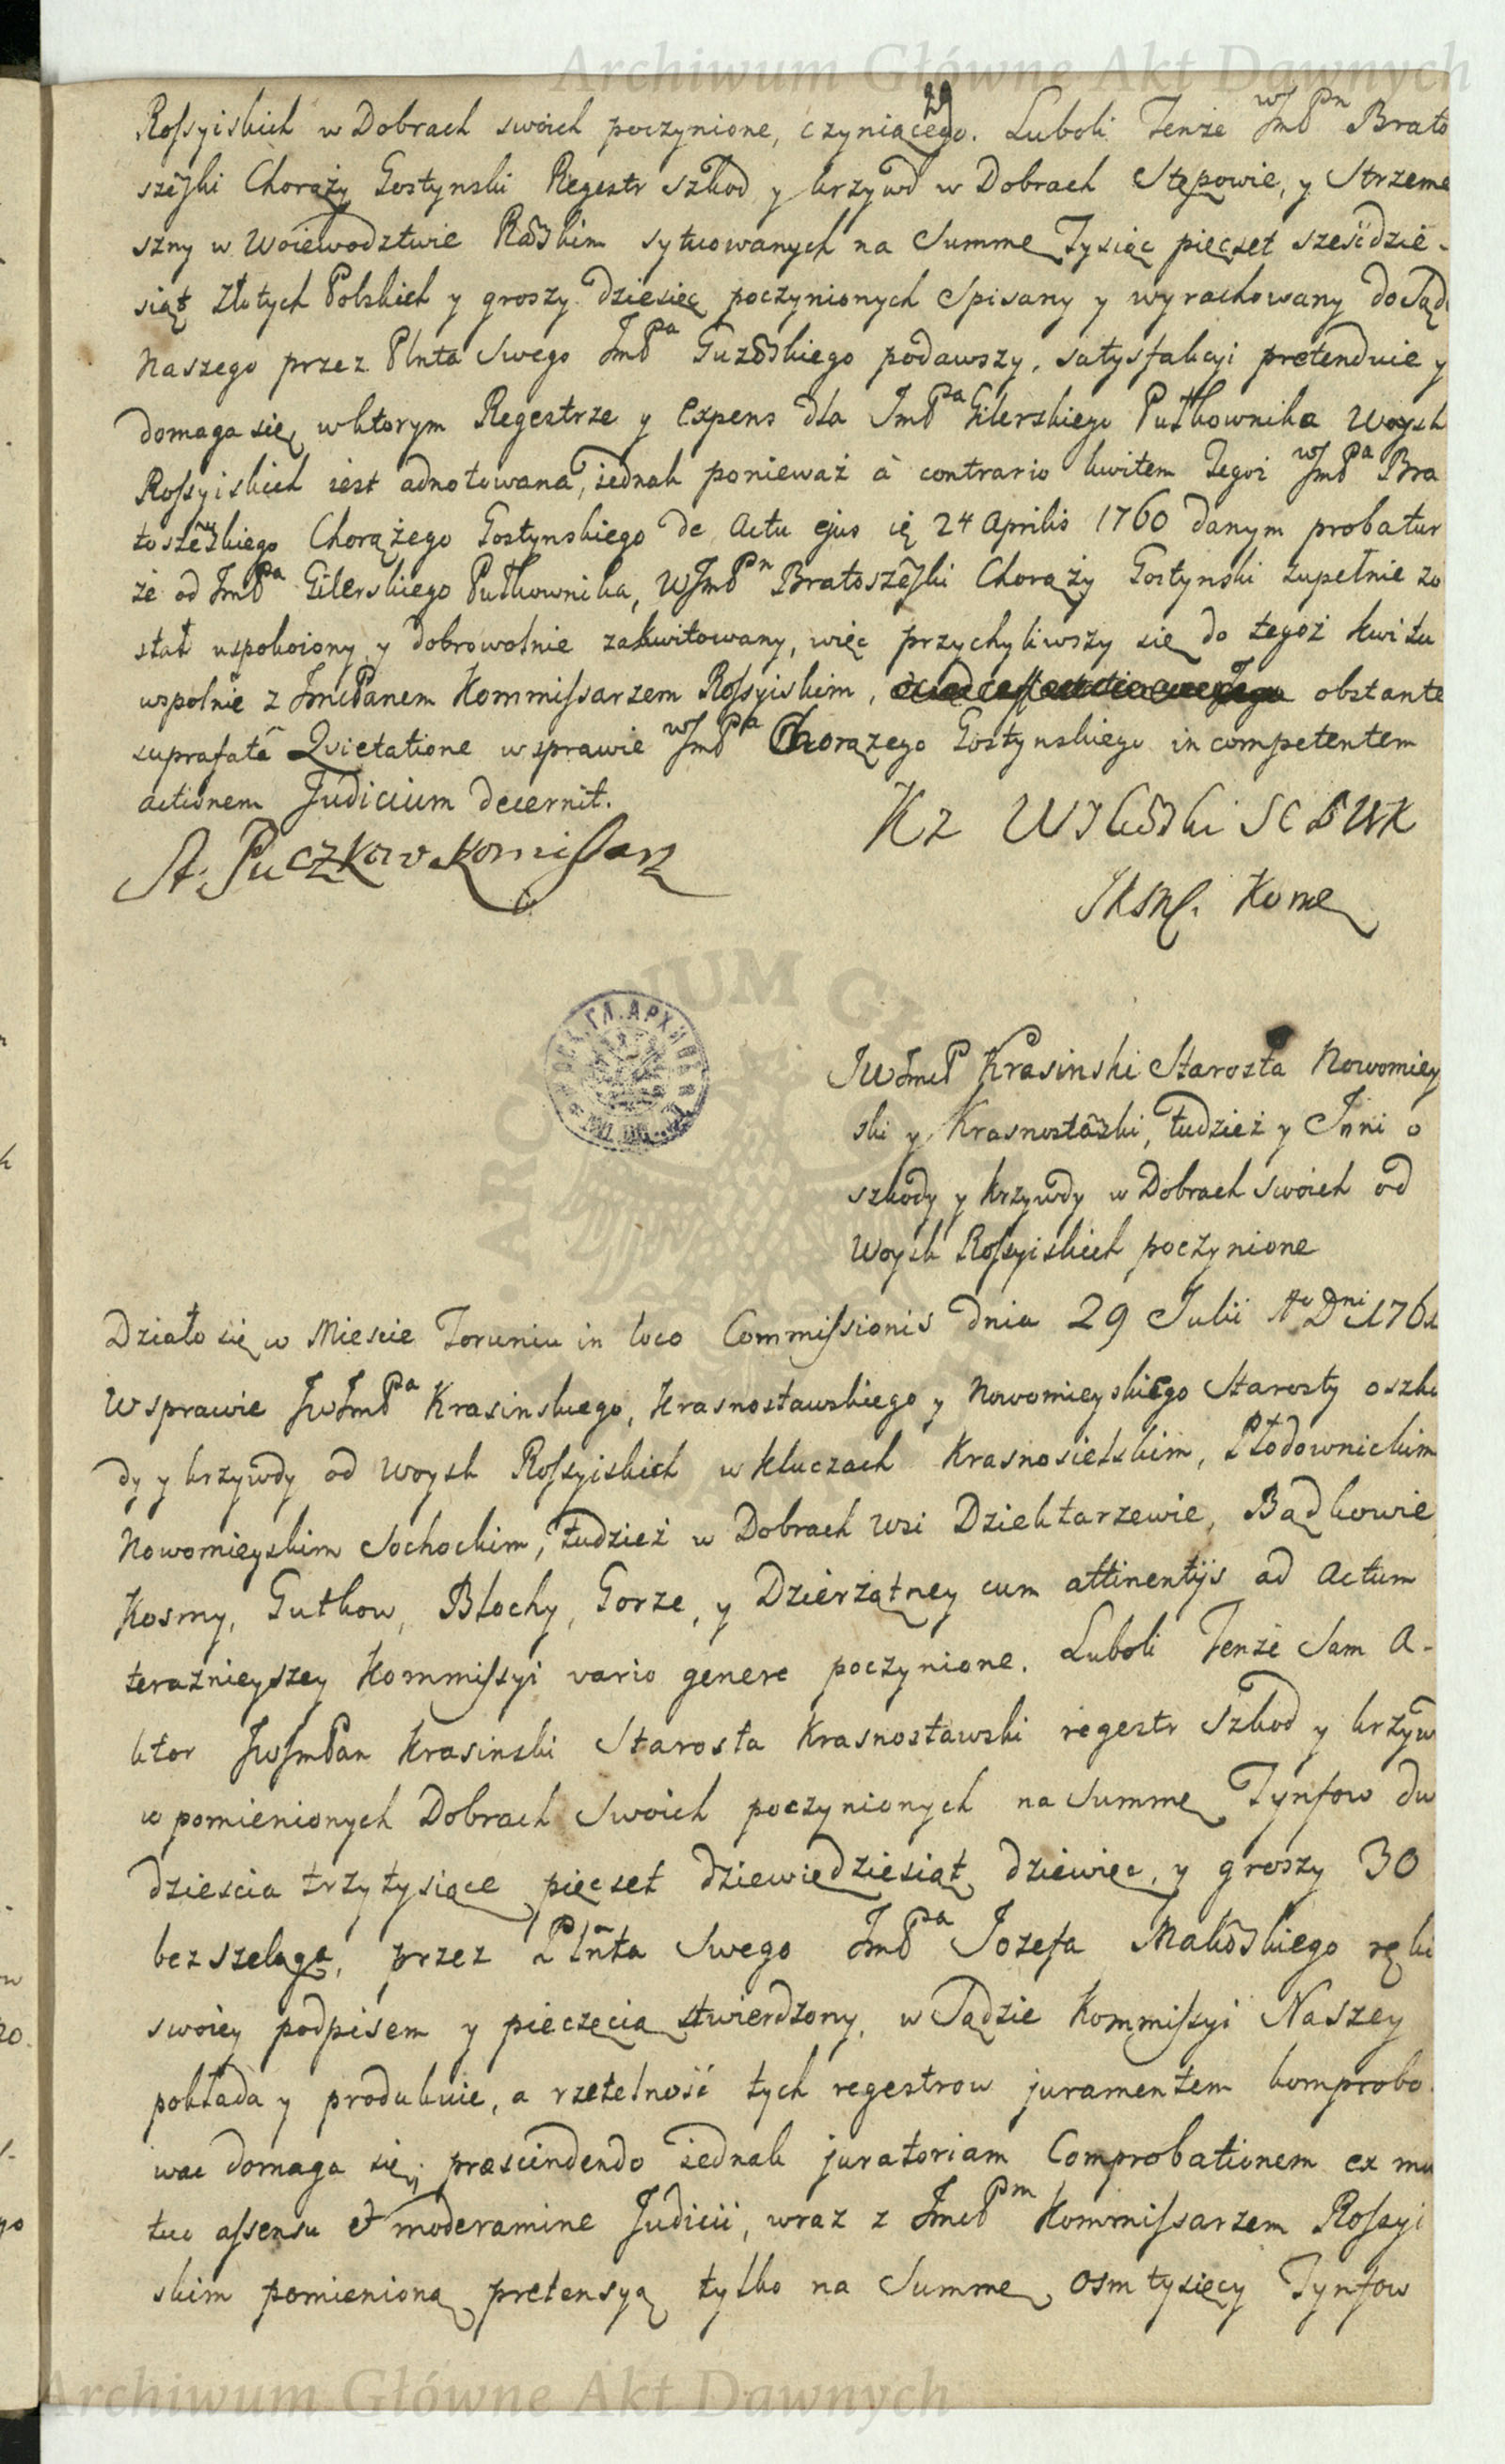 Archiwum Główne Akt Dawnych
Rossyiskich w Dobrach swoich poczynione, czyniącego. Luboli Tenże WJmć Pn Brato
szewski Chorąży Gostynski Regestr szkod y krzywd w Dobrach Stępowie, y Strzeme
szny w Woiewodztwie Rawskim sytuowanych na Summę Tysiąc pięcset szesćdzie-
siąt Złotych Polskich y groszy dziesięc poczynionych Spisany y wyrachowany do Sądu
Naszego przez Plnta Swego JmćPa Guzowskiego podawszy, satysfakcyi pretenduie y
domaga się, w ktorym Regestrze y Expens dla JmćPa Gilerskiego Pułkownika Woysk
Rossyiskich iest adnotowana, iednak ponieważ à contrario kwitem Tegoż WJmćPa Bra
toszewskiego Chorążego Gostynskiego de Actu ejus 24 Aprilis 1760 danym probatur
że od JmćPa Gilerskiego Pułkownika, WJmćPn Bratoszewski Chorąży Gostynski zupełnie zo
stał uspokoiony y dobrowolnie zakwitowany, więc przychyliwszy się do tegoż kwitu
wspolnie z JmćPanem Kommissarzem Rossyiskim, obstante
suprafatâ Quietatione w sprawie WJmćPa Chorązego Gostynskiego in competentem
actionem Judicium decernit.
St. Puczkow Komissarz
Kz
JWJmćP Krasinski Starosta Nowomiey
ski y Krasnostawski, tudzież y Inni o
szkody y krzywdy w Dobrach swoich od
Woysk Rossyiskich poczynione
Działo się w Miescie Toruniu in loco Commissionis dnia 29 Julii Ao Dni 176
W sprawie JWJmćPa Krasinskiego, Krasnostawskiego y Nowomieyskiego Starosty o szko
dy y krzywdy od Woysk Rossyiskich w kluczach Krasnosielskim, Płodownickim
Nowomieyskim Sochockim, tudzież w Dobrach Wsi Dziektarzewie, Bądkowie
Kosmy, Gutkow, Błochy, Gorze, y Dzierżątney cum attinentijs ad Actum
teraznieyszey Kommissyi vario genere poczynione. Luboli Tenże Sam A-
ktor JWJmćPan Krasinski Starosta Krasnostawski regestr Szkod y krzyw
w pomienionych Dobrach Swoich poczynionych na Summę Tynfow dw
dziescia trzy tysiące pięcset dziewiędziesiąt dziewięc, y groszy 30
bez szeląga, przez Plnta Swego JmćPa Jozefa Makowskiego ręki
swoiey podpisem y pieczęcia stwierdzony, w Sądzie Kommissyi Naszey
pokłada y produkuie, a rzetelność tych regestrow juramentem komprobo-
wac domaga się; præscindendo iednak juratoriam Comprobationem ex mu
tuo assensu et moderamine Judicii, wraz z JmćPm Kommissarzem Rossyi
skim pomienioną pretensyą tylko na Summę osm tysięcy Tynfow
Archiwum Główne Akt Dawnych